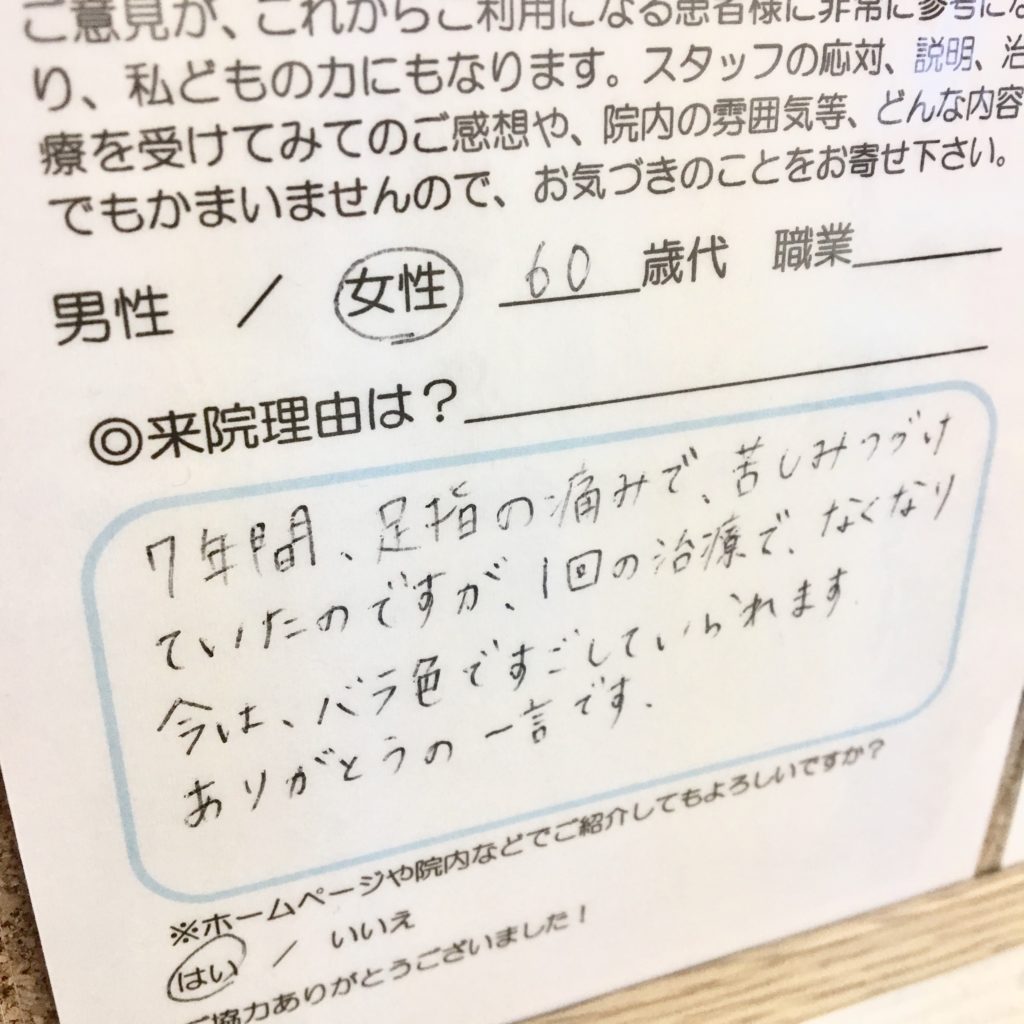 ご意見が、これからご利用になる患者様に非常に参考にな
り、私どもの力にもなります。スタッフの応対、説明、治
療を受けてみてのご感想や、院内の雰囲気等、どんな内容
でもかまいませんので、お気づきのことをお寄せ下さい。
男性 / 女性 60歳代 職業
◎来院理由は?
7年間、足指の痛みで、苦しみつづけ
ていたのですが、1回の治療で、なくなり
今は、バラ色ですごしていられます
ありがとうの一言です.
※ホームページや院内などでご紹介してもよろしいですか?
はい / いいえ
ご協力ありがとうございました!